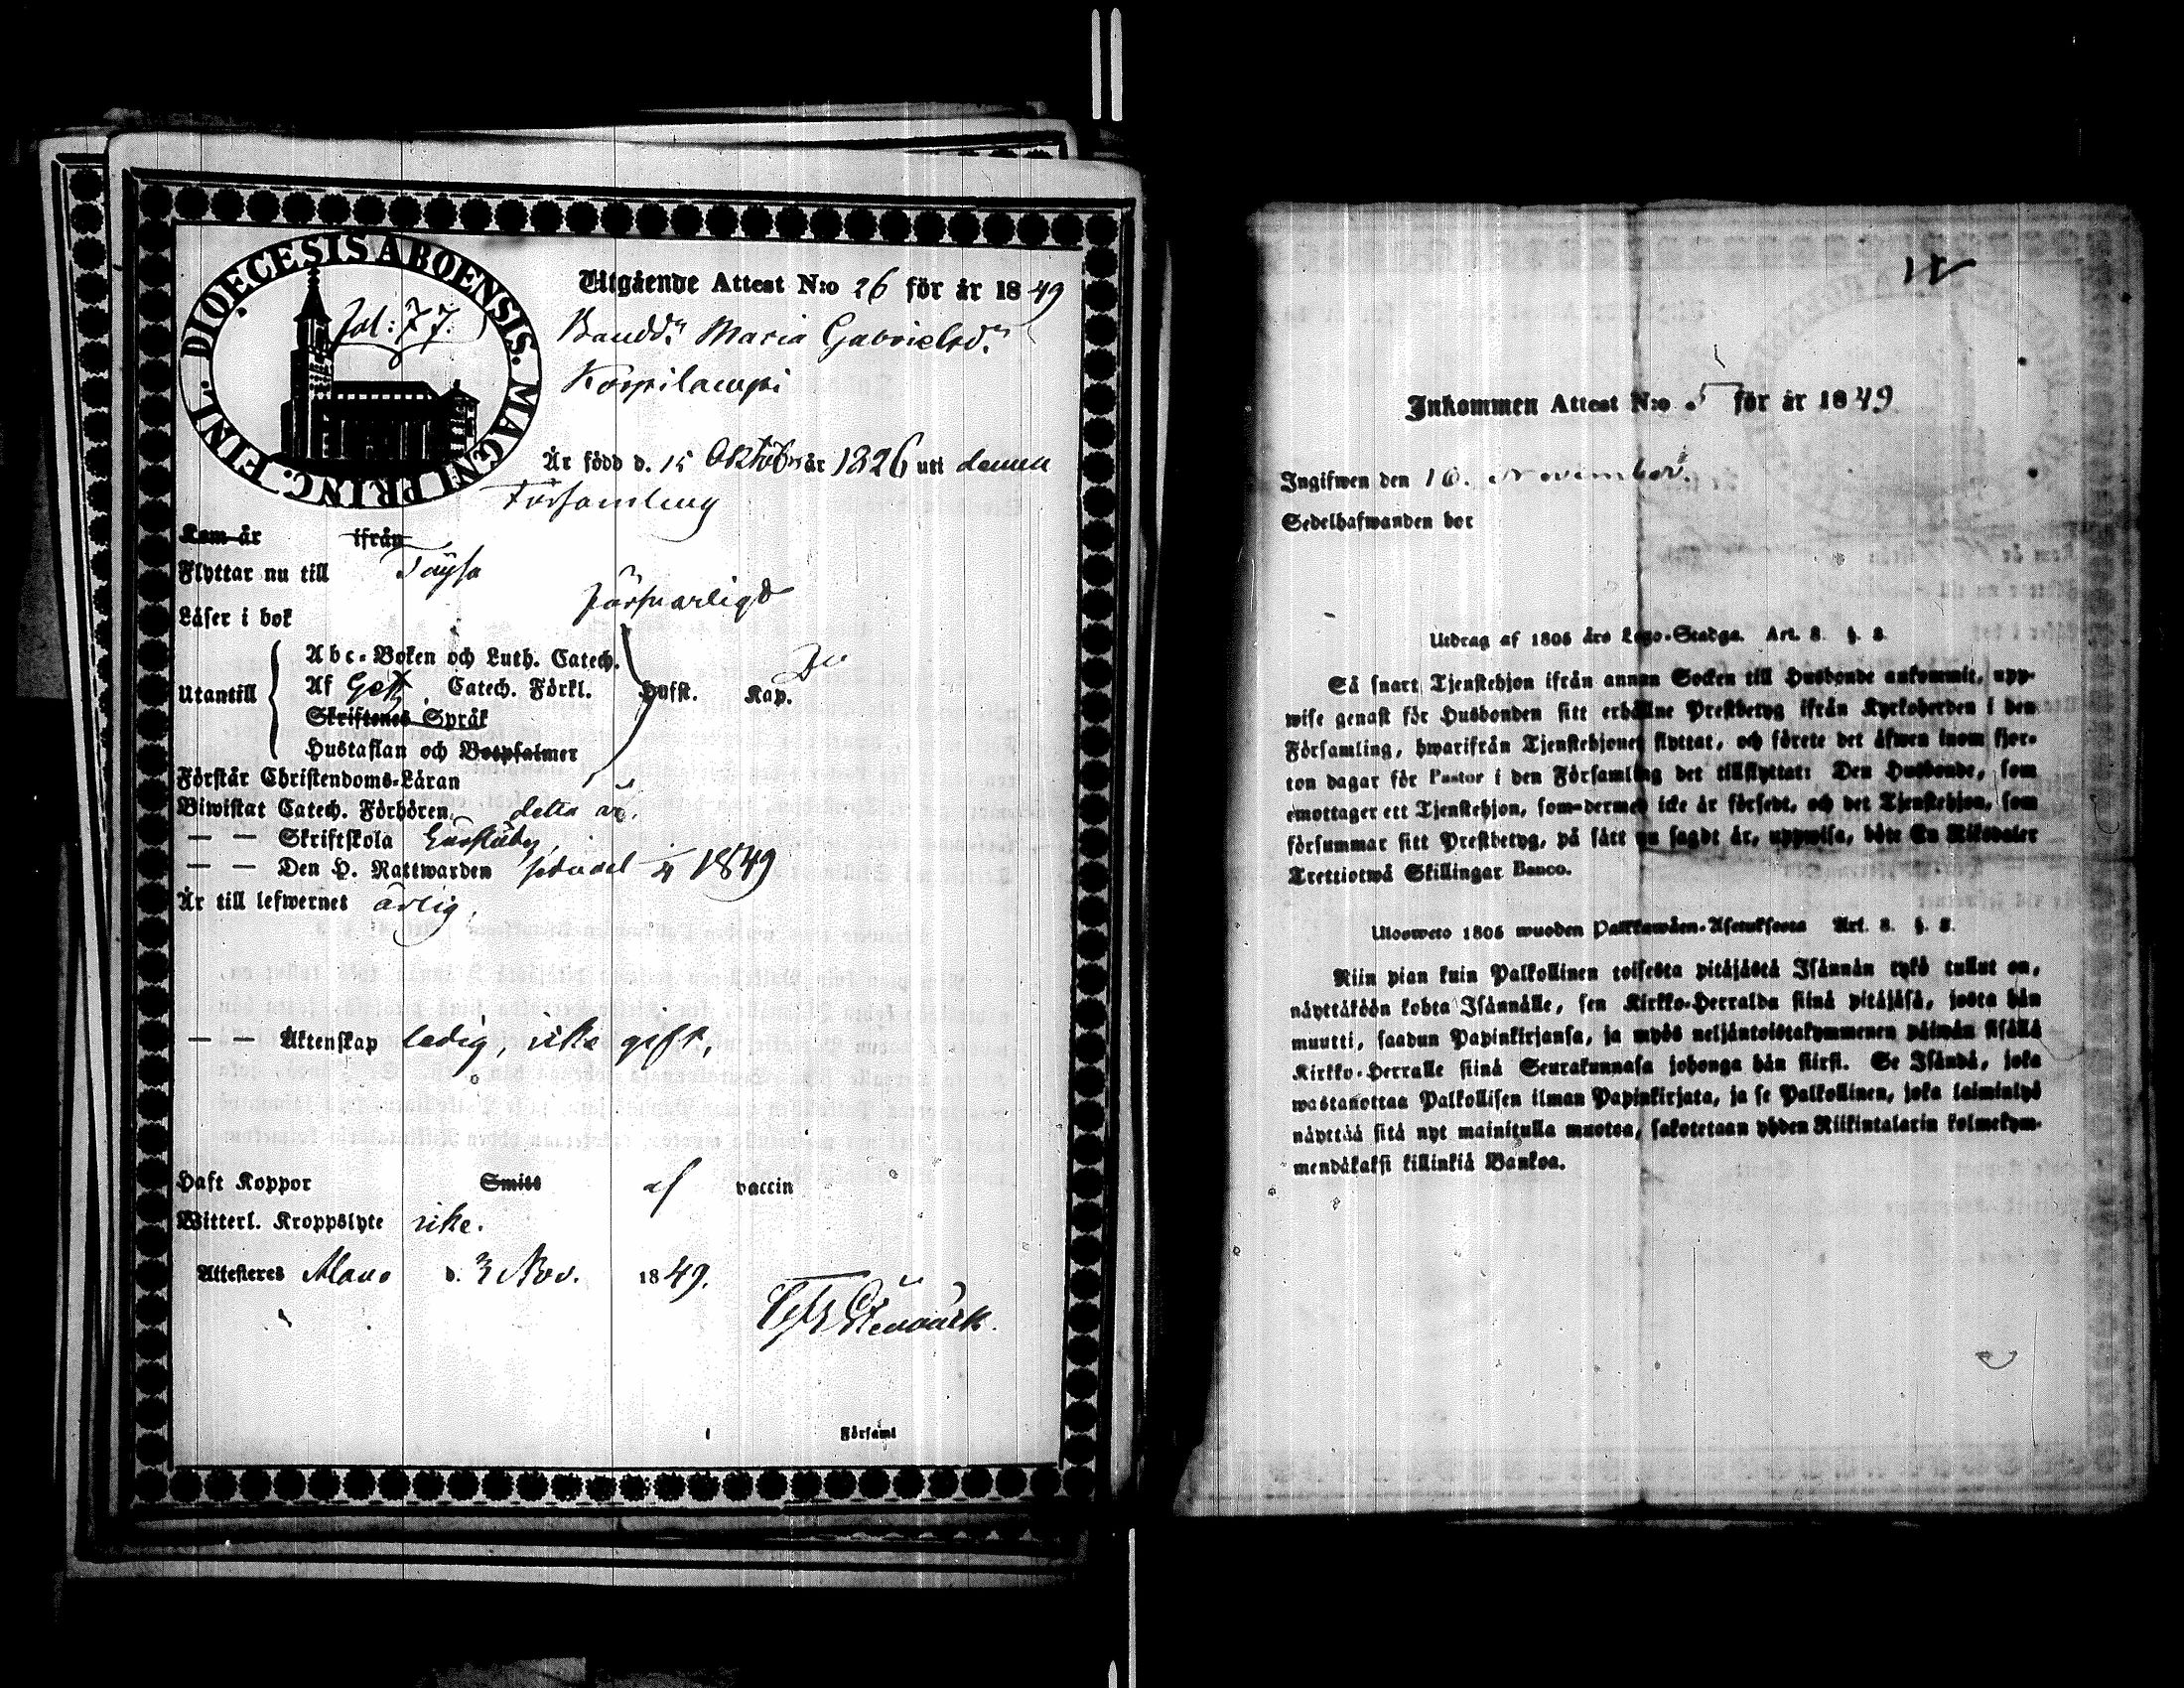 DIOECESIS ABOENSIS. MAGNI PRINC. FINL.
Fol: 77.
Utgående Attest N:o 26 för år 1849
Bondd:n Maria Gabrielsd:n
Korpilampi
Är född d. 15 Oktob. år 1826 uti denna
Församling
Kom år ifrån
Flyttar nu till Töysä
Läser i bok försvarligt
Utantill
Abc-Boken och Luth. Catech.
Af Catech. Förkl. Hufst. Kap. Do
Skriftenes Språk
Hustaflan och Botpsalmer
Förstår Christendoms-Läran
Biwistat Catech. Förhören detta år.
— — Skriftskola
— — Den H. Nattwarden 1849
Är till lefwernet ärlig,
— — Äktenskap ledig, icke gift,
Haft Koppor Smitt af vaccin
Witterl. Kroppslyte icke.
Attesteres Alavo d. 3 Nov. 1849.
Församl
Inkommen Attest N:o 5 för år 1849
Ingifwen den 16. November.
Sedelhafwanden bor
Utdrag af 1805 års Lego-Stadga. Art. 8. §. 8.
Så snart Tjenstehjon ifrån annan Socken till Husbonde ankommit, upp-
wise genast för Husbonden sitt erhållne Prestbetyg ifrån Kyrkoherden i den
Församling, hwarifrån Tjenstehjonet flyttat, och förete det äfwen inom fjor-
ton dagar för Pastor i den Församling det tillflyttat: Den Husbonde, som
emottager ett Tjenstehjon, som dermed icke är försedt, och det Tjenstehjon, som
försummar sitt Prestbetyg, på sätt nu sagdt är, uppwisa, böte En Riksdaler
Trettiotwå Skillingar Banco.
Ulosweto 1805 wuoden Palkkawäen-Asetuksesta Art. 8. §. 8.
Niin pian kuin Palkollinen toisesta pitäjästä Isännän tykö tullut on,
näyttäköön kohta Isännälle, sen Kirkko-Herralda siinä pitäjäsä, josta hän
muutti, saadun Papinkirjansa, ja myös neljäntoistakymmenen päiwän sisällä
Kirkko-Herralle siinä Seurakunnasa johonga hän siirsi. Se Isändä, joka
wastanottaa Palkollisen ilman Papinkirjata, ja se Palkollinen, joka laiminlyö
näyttää sitä nyt mainitulla muotoa, sakotetaan yhden Riikintalarin kolmekym-
mendäkaksi killinkiä Bankoa.